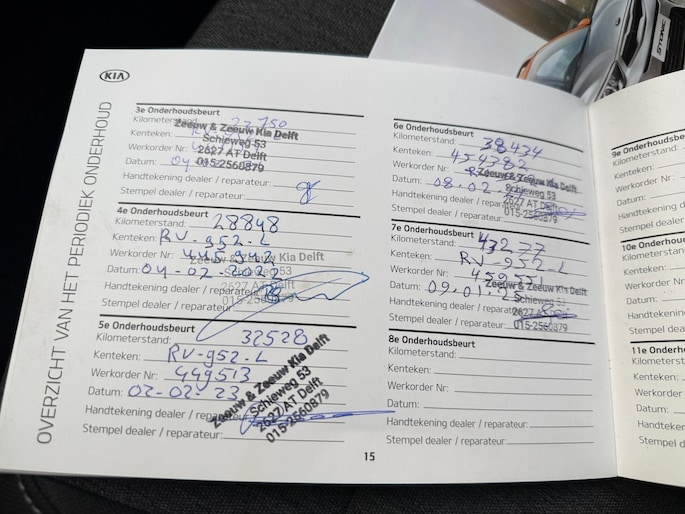 KIA
OVERZICHT VAN HET PERIODIEK ONDERHOUD
3e Onderhoudsbeurt
Kilometerstand: 27750
Kenteken:
Werkorder Nr:
Datum: 04
Handtekening dealer / reparateur:
Stempel dealer / reparateur:
Zeeuw & Zeeuw Kia Delft
Schieweg 53
2627 AT Delft
015-2560879
4e Onderhoudsbeurt
Kilometerstand: 28848
Kenteken: RV-952-L
Werkorder Nr: 445942
Datum: 04-02-2022
Handtekening dealer / reparateur:
Stempel dealer / reparateur:
Zeeuw & Zeeuw Kia Delft
Schieweg 53
2627 AT Delft
015-2560879
5e Onderhoudsbeurt
Kilometerstand: 32528
Kenteken: RV-952-L
Werkorder Nr: 449513
Datum: 02-02-23
Handtekening dealer / reparateur:
Stempel dealer / reparateur:
Zeeuw & Zeeuw Kia Delft
Schieweg 53
2627 AT Delft
015-2560879
6e Onderhoudsbeurt
Kilometerstand: 38434
Kenteken: 454782
Werkorder Nr:
Datum: 08.02.
Handtekening dealer / reparateur:
Stempel dealer / reparateur:
Zeeuw & Zeeuw Kia Delft
Schieweg 53
2627 AT Delft
015-2560879
7e Onderhoudsbeurt
Kilometerstand: 43277
Kenteken: RV-952-L
Werkorder Nr:
Datum: 09.01.25
Handtekening dealer / reparateur:
Stempel dealer / reparateur:
Zeeuw & Zeeuw Kia Delft
Schieweg 53
2627 AT Delft
015-2560879
8e Onderhoudsbeurt
Kilometerstand:
Kenteken:
Werkorder Nr:
Datum:
Handtekening dealer / reparateur:
Stempel dealer / reparateur:
15
9e Onderhoudsbeu
Kilometerstand:
Kenteken:
Werkorder Nr:
Datum:
Handtekening d
Stempel deale
10e Onderho
Kilometersta
Kenteken:
Werkorder
Datum:
Handteken
Stempel dea
11e Onderh
Kilometers
Kenteken:
Werkorder
Datum:
Handteke
Stempel d
STONIC